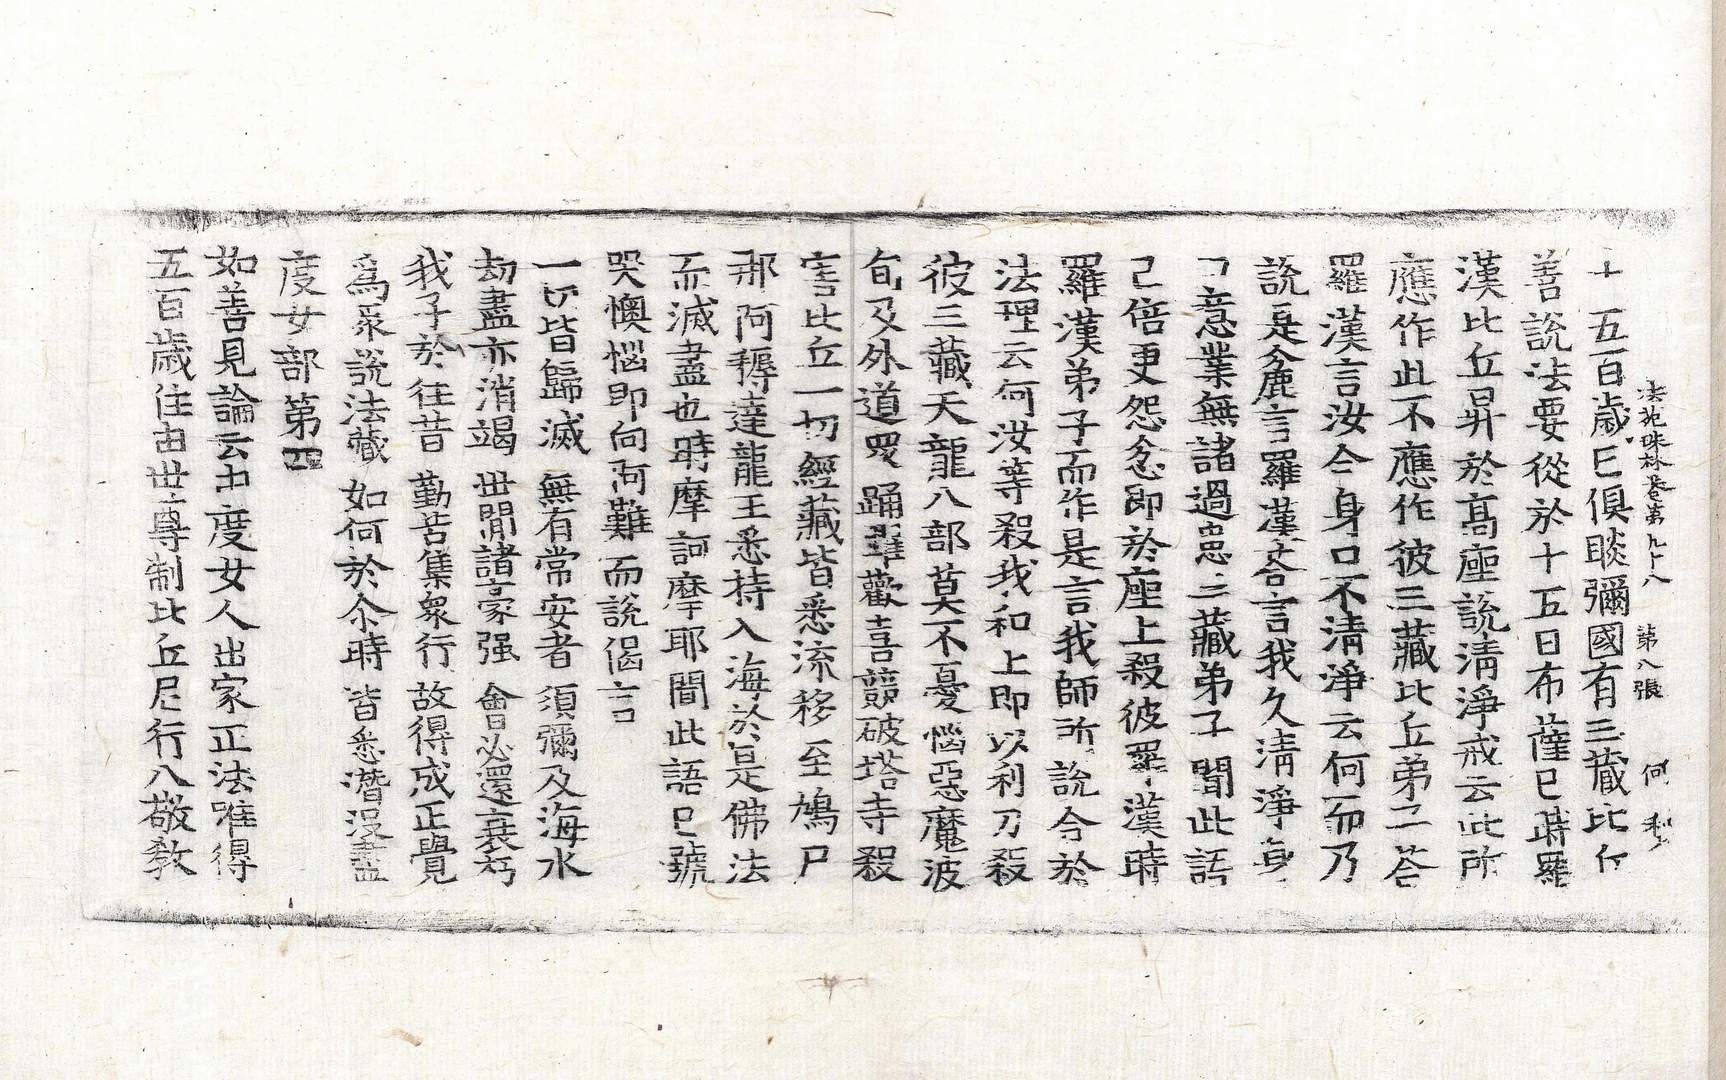 法苑珠林卷第九十八 第八張 何
千五百歲已俱睒彌國有三藏比丘
善說法要從於十五日布薩已時羅
漢比丘昇於高座說清淨戒云此所
應作此不應作彼三藏比丘弟子荅
羅漢言汝今身口不清淨云何而乃
說是麁言羅漢荅言我久淸淨身
口意業無諸過惡三藏弟子聞此語
已倍更怨忿即於座上殺彼羅漢時
羅漢弟子而作是言我師所說今於
法理云何汝等殺我和上即以利刀殺
彼三藏天龍八部莫不憂惱惡魔波
旬及外道衆踊躍歡喜競破塔寺殺
害比丘一切經藏皆悉流移至鳩尸
那阿耨達龍王悉持入海於是佛法
而滅盡也時摩訶摩耶聞此語已號
哭懊惱即向阿難而說偈言
一切皆歸滅 無有常安者 須彌及海水
劫盡亦消竭 世間諸豪强 會必還衰朽
我子於往昔 勤苦集衆行 故得成正覺
爲衆說法藏 如何於尒時 皆悉潛沒盡
度女部第四
如善見論云由度女人出家正法唯得
五百歲住由世尊制比丘尼行八敬教